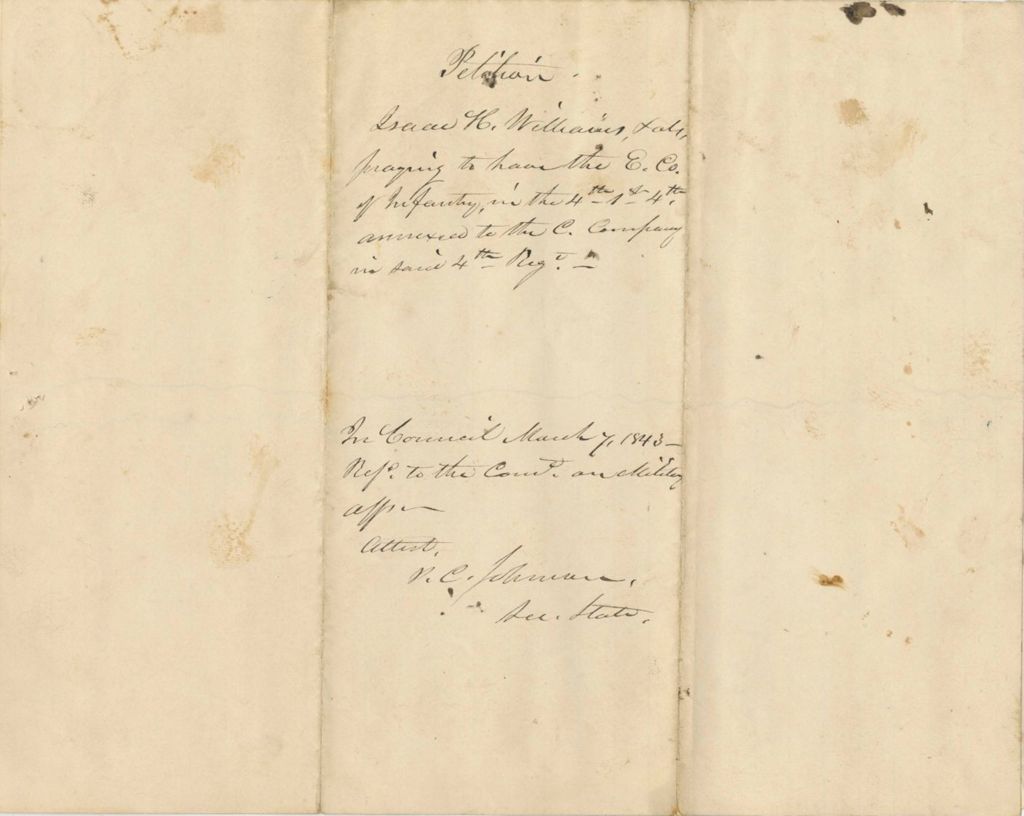 Petition.
Isaac H. Williams, & als,
praying to have the E. Co.
of Infantry, in the 4th 1st 4th,
annexed to the C. Company
in said 4th Regt. —
In Council March 7, 1843 —
Refd. to the Comee. on Military
affs —
Attest,
P. C. Johnson,
Sec. State.